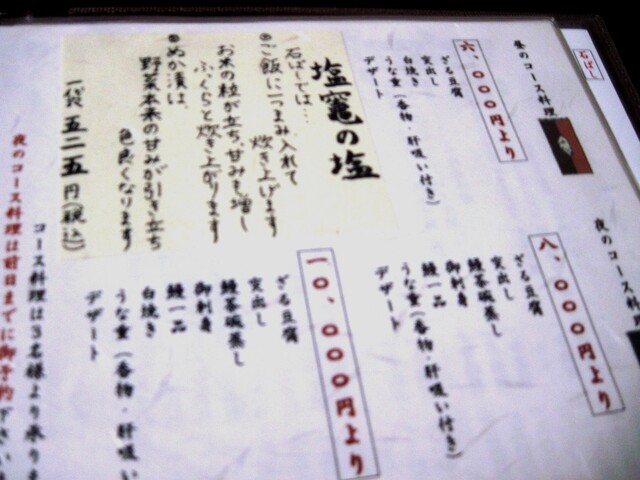 石ばし
昼のコース料理
六、〇〇〇円より
ざる豆腐
突出し
白焼き
うな重(香物・肝吸い付き)
デザート
塩竈の塩
石ばしでは…
ご飯に一つまみ入れて
炊き上げます
お米の粒が立ち、甘みも増し
ふっくらと炊き上がります
ぬか漬は、
野菜本来の甘みが引き立ち
色良くなります
一袋 五二五円(税込)
夜のコース料
八、〇〇〇円より
ざる豆腐
突出し
鰻茶碗蒸し
御刺身
鰻一品
うな重(香物・肝吸い付き)
デザート
一〇、〇〇〇円より
ざる豆腐
突出し
鰻茶碗蒸し
御刺身
鰻一品
白焼き
うな重(香物・肝吸い
デザート
コース料理は3名様より承りま
夜のコース料理は前日までに御予約下さいま